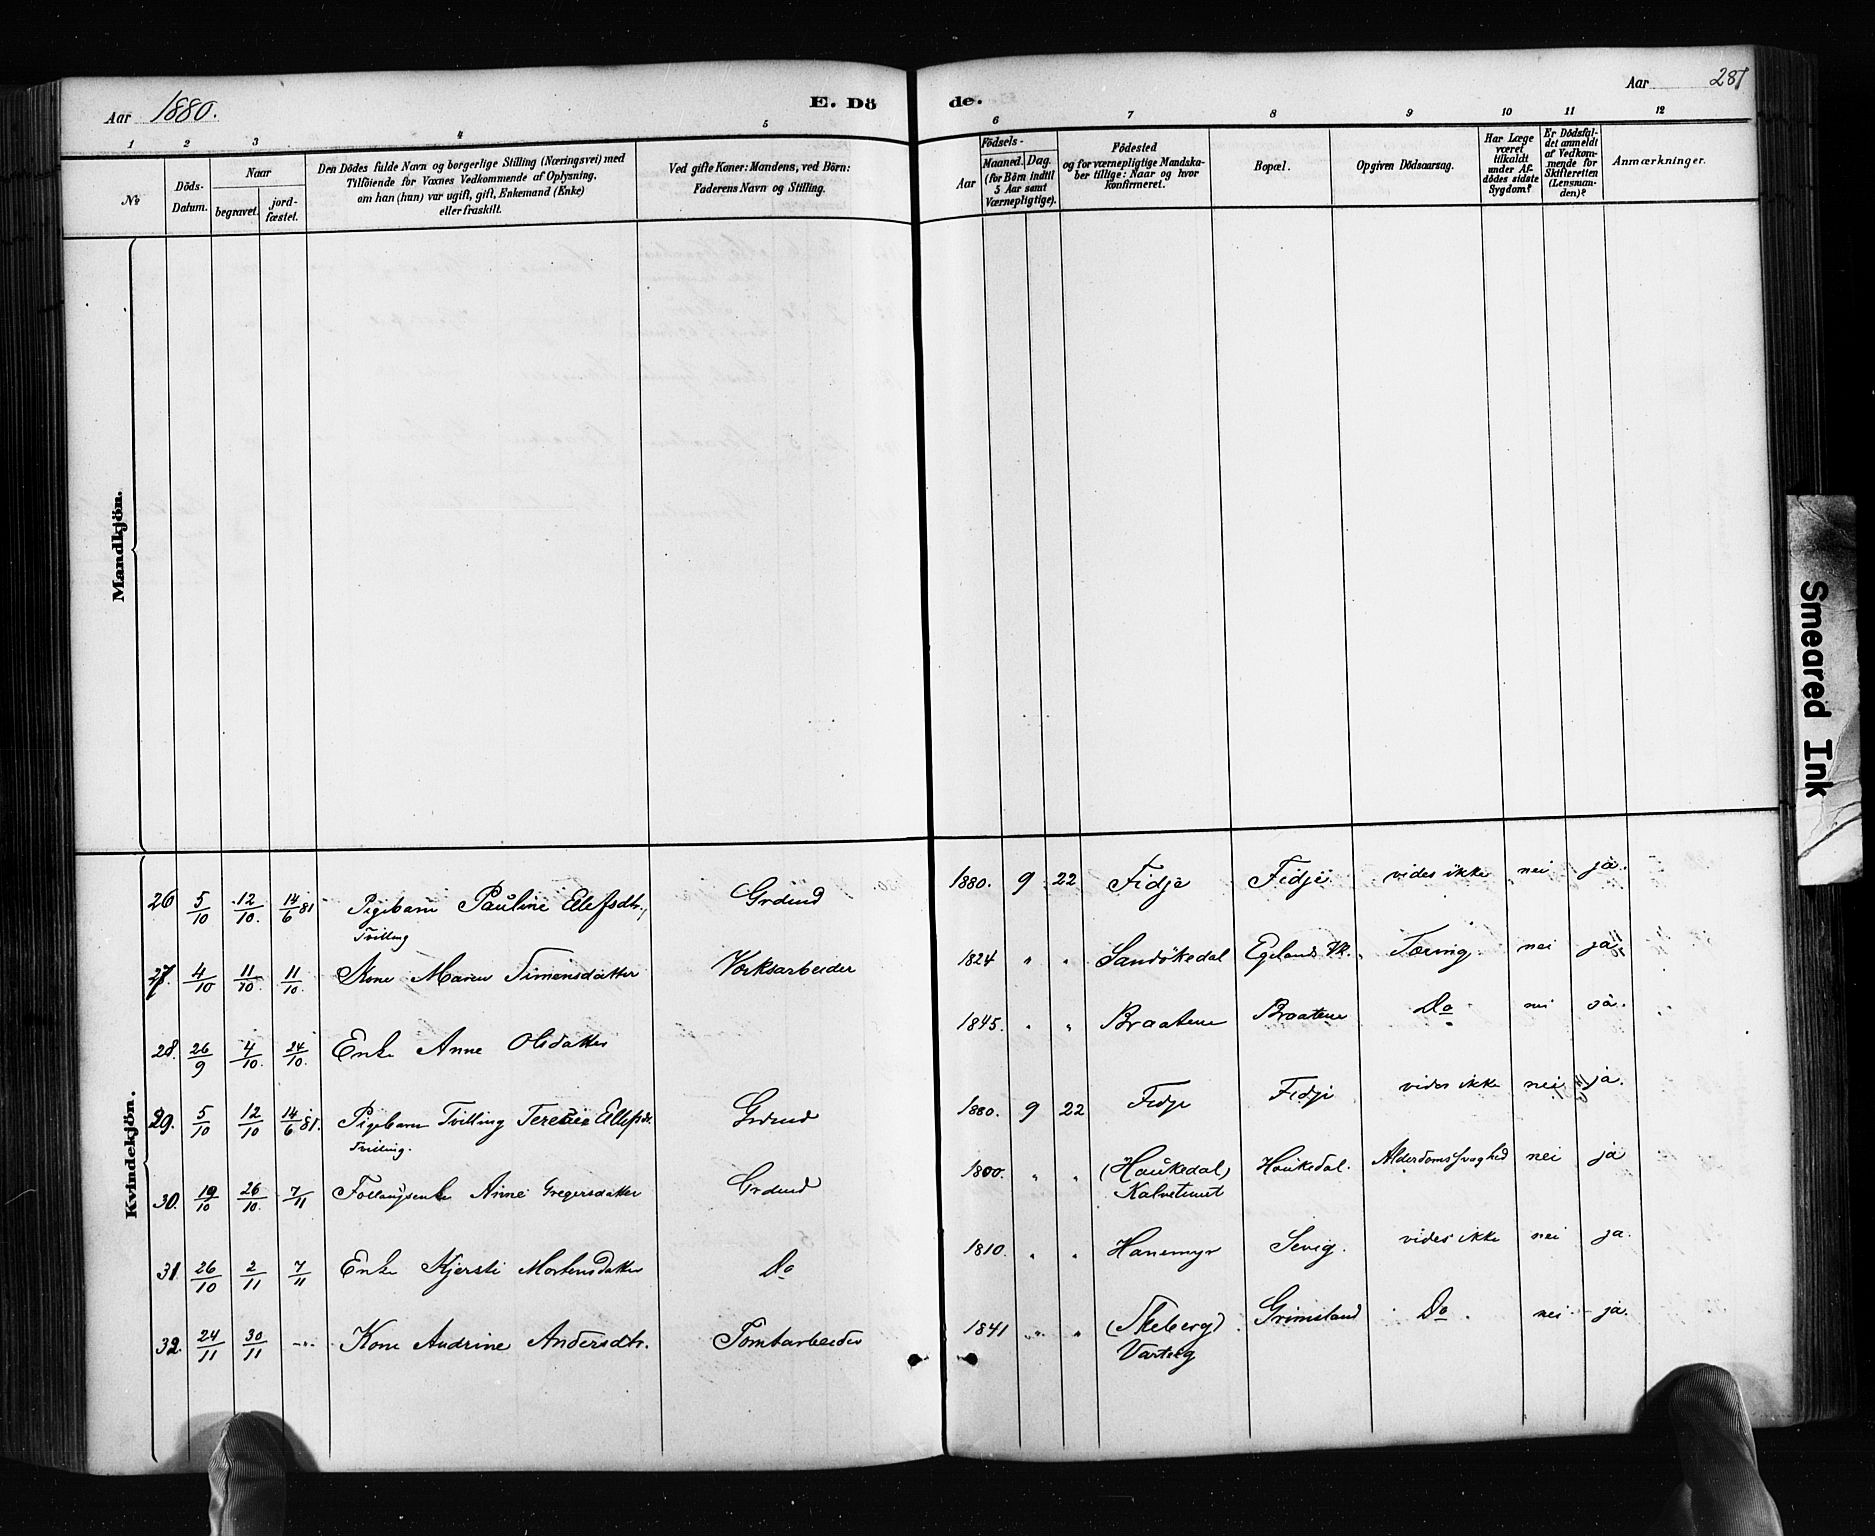 Aar 1880.
E. Dö
de.
Aar 287
1 2 3 4 5 6 7 8 9 10 11 12
No
Döds-
Datum.
Naar
begravet.
jord-
fæstet.
Den Dödes fulde Navn og borgerlige Stilling (Næringsvei) med
Tilföiende for Voxnes Vedkommende af Oplysning,
om han (hun) var ugift, gift, Enkemand (Enke)
eller fraskilt.
Ved gifte Koner: Mandens, ved Börn:
Faderens Navn og Stilling.
Födsels-
Aar
Maaned. Dag.
(for Börn indtil
5 Aar samt
Værnepligtige).
Födested
og for værnepligtige Mandska-
ber tillige: Naar og hvor
konfirmeret.
Bopæl.
Opgiven Dödsaarsag.
Har Læge
været
tilkaldt
under Af-
dödes sidste
Sygdom?
Er Dödsfal-
det anmeldt
af Vedkom-
mende for
Skifteretten
(Lensman-
den)?
Anmærkninger.
Mandkjön.
Kvindekjön.
26 5/10 12/10. 14/6 81 Pigebarn Pauline Ellefsdtr. Grdmd 1880. 9 22 Fidje Fidje vides ikke nei ja.
Tvilling
27. 4/10 11/10. 11/10. Kone Maren Simensdatter Værksarbeider 1824 " " Sandökedal Egelands Vk. Tæring nei ja
28. 26/9 4/10. 24/10. Enke Anne Olsdatter 1845. " " Braatene Braatene Do nei ja.
29. 5/10 12/10 14/6 81. Pigebarn Tvilling Teresie Ellefsdt. Grdmd 1880. 9 22 Fidje Fidje vides ikke nei ja.
Tvilling.
30. 19/10 26/10. 7/11 Anne Gregersdatter Grdmd 1800. " " (Haukedal) Haukedal. Alderdomssvaghed nei ja
31. 26/10 2/11 7/11 Enke Kjersti Mortensdatter Do 1810. " " Hanemyr Sevig. vides ikke nei ja.
32. 24/11 30/11 -"- Kone Andrine Andersdtr. Tomtarbeider 1841 " " (Skeberg) Grimsland Do. nei ja.
Smeared Ink